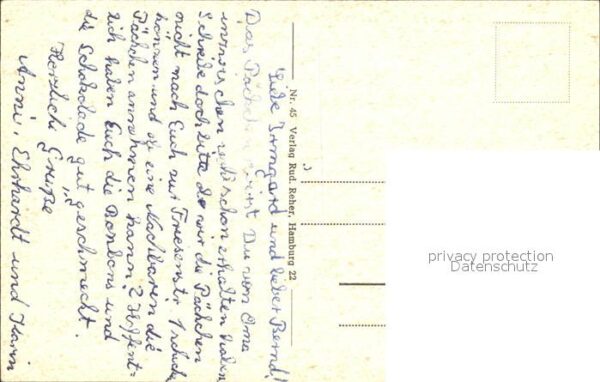 Liebe Irmgard und lieber Bernd!
Das Päckchen wirst Du von Oma
inzwischen wohl schon erhalten haben
Schreibe doch bitte ob wir die Päckchen
nicht nach Euch zur Friesenstr 1 schicken
können und ob eine Nachbarin die
Päckchen annehmen kann? Hoffent-
lich haben Euch die Bonbons und
die Schokolade gut geschmeckt.
Herzliche Grüße
Anni, Ehrhardt und Karin
Nr. 45 Verlag Rud. Reher, Hamburg 22
privacy protection
Datenschutz